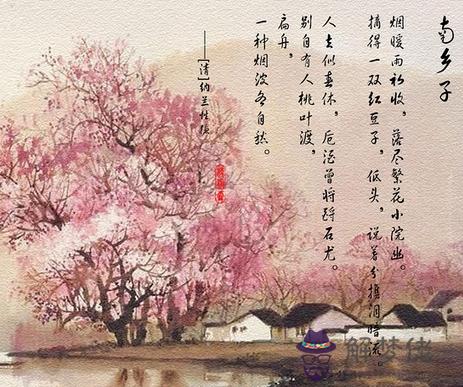 南乡子
烟暖雨初收,落尽繁花小院幽。
摘得一双红豆子,低头,说著分携泪暗流。
人去似春休,卮酒曾将酹石尤。
别自有人桃叶渡,
扁舟,
一种烟波各自愁。
——[清]纳兰性德
解梦佳